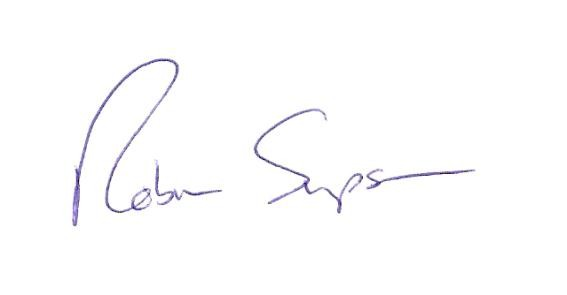 Robin Simpson